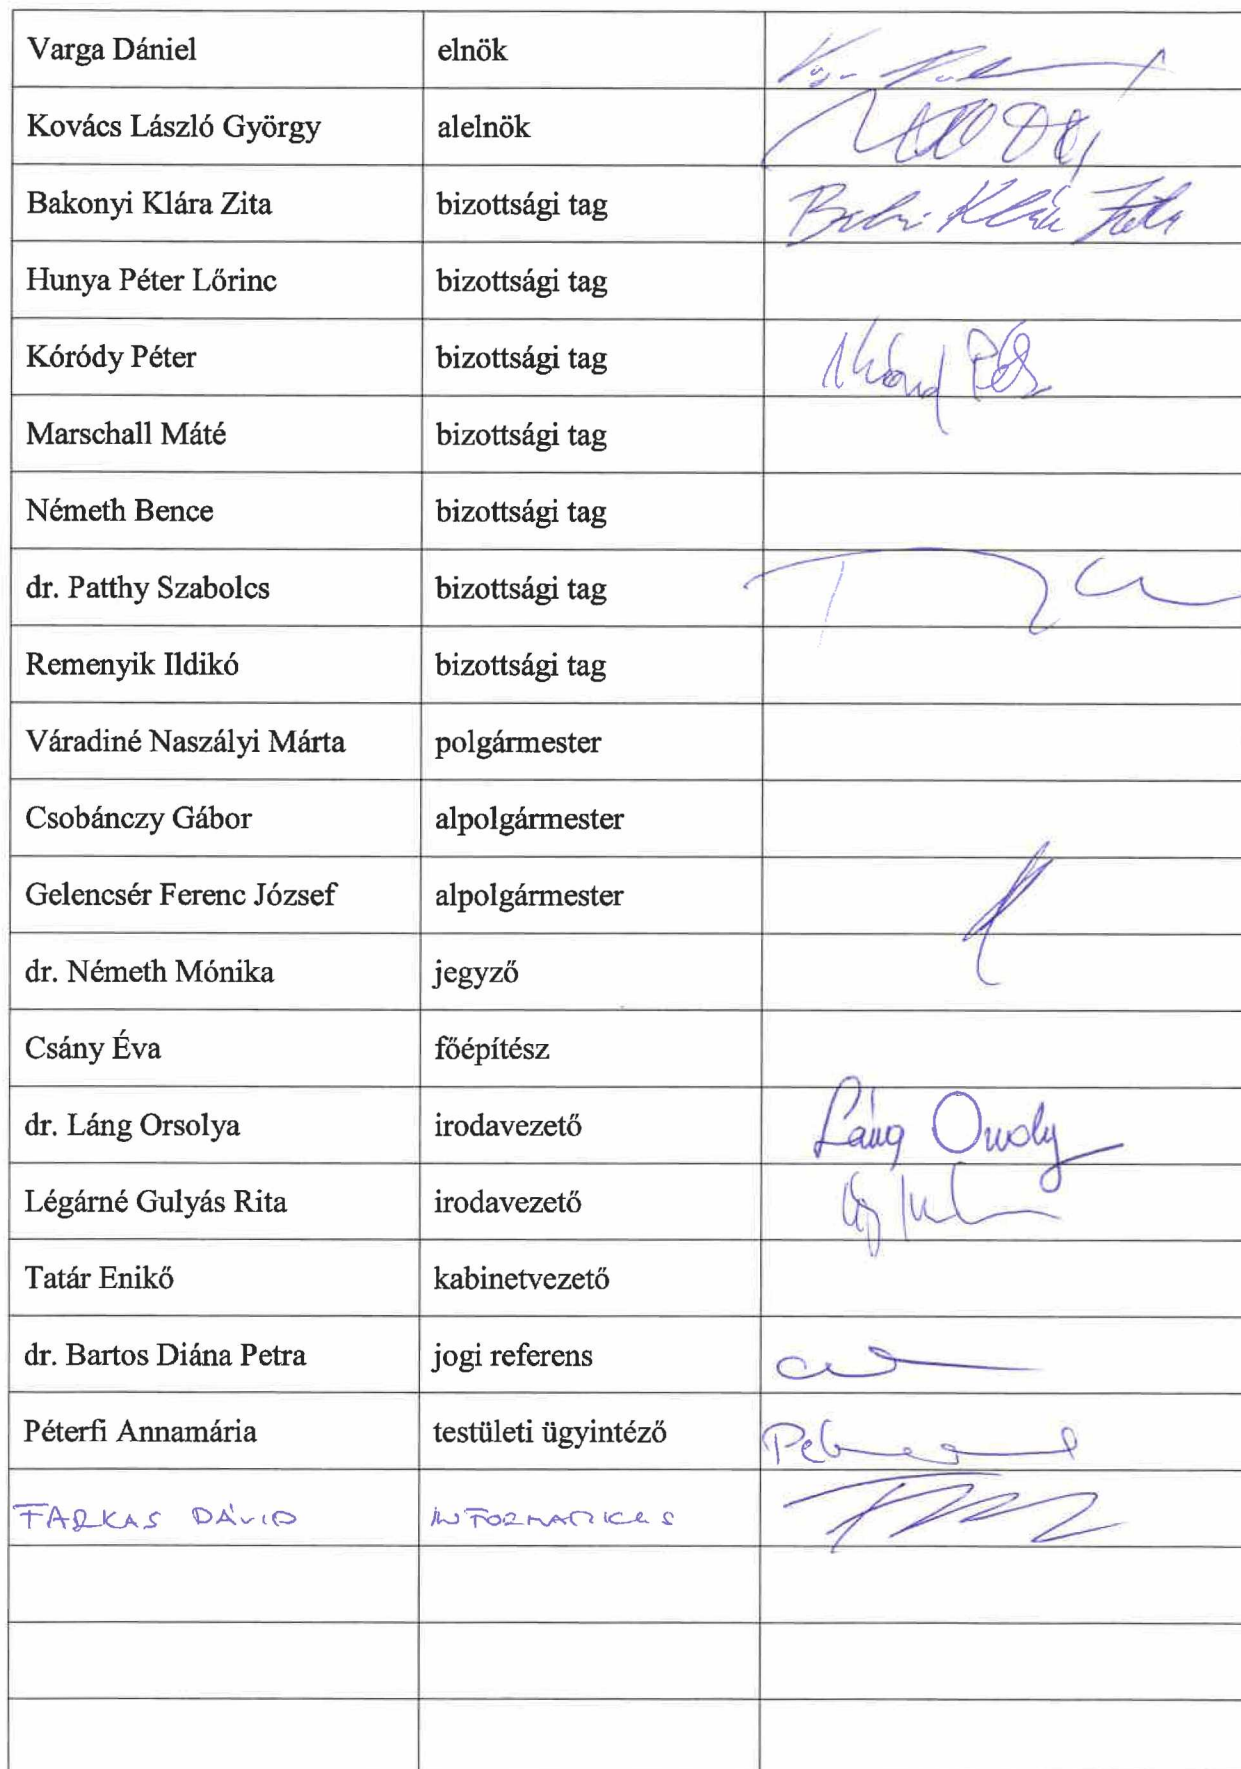 Varga Dániel elnök
Kovács László György alelnök
Bakonyi Klára Zita bizottsági tag
Hunya Péter Lőrinc bizottsági tag
Kóródy Péter bizottsági tag
Marschall Máté bizottsági tag
Németh Bence bizottsági tag
dr. Patthy Szabolcs bizottsági tag
Remenyik Ildikó bizottsági tag
Váradiné Naszályi Márta polgármester
Csobánczy Gábor alpolgármester
Gelencsér Ferenc József alpolgármester
dr. Németh Mónika jegyző
Csány Éva főépítész
dr. Láng Orsolya irodavezető Láng Orsolya
Légárné Gulyás Rita irodavezető
Tatár Enikő kabinetvezető
dr. Bartos Diána Petra jogi referens
Péterfi Annamária testületi ügyintéző
FARKAS DÁVID INFORMATIKUS